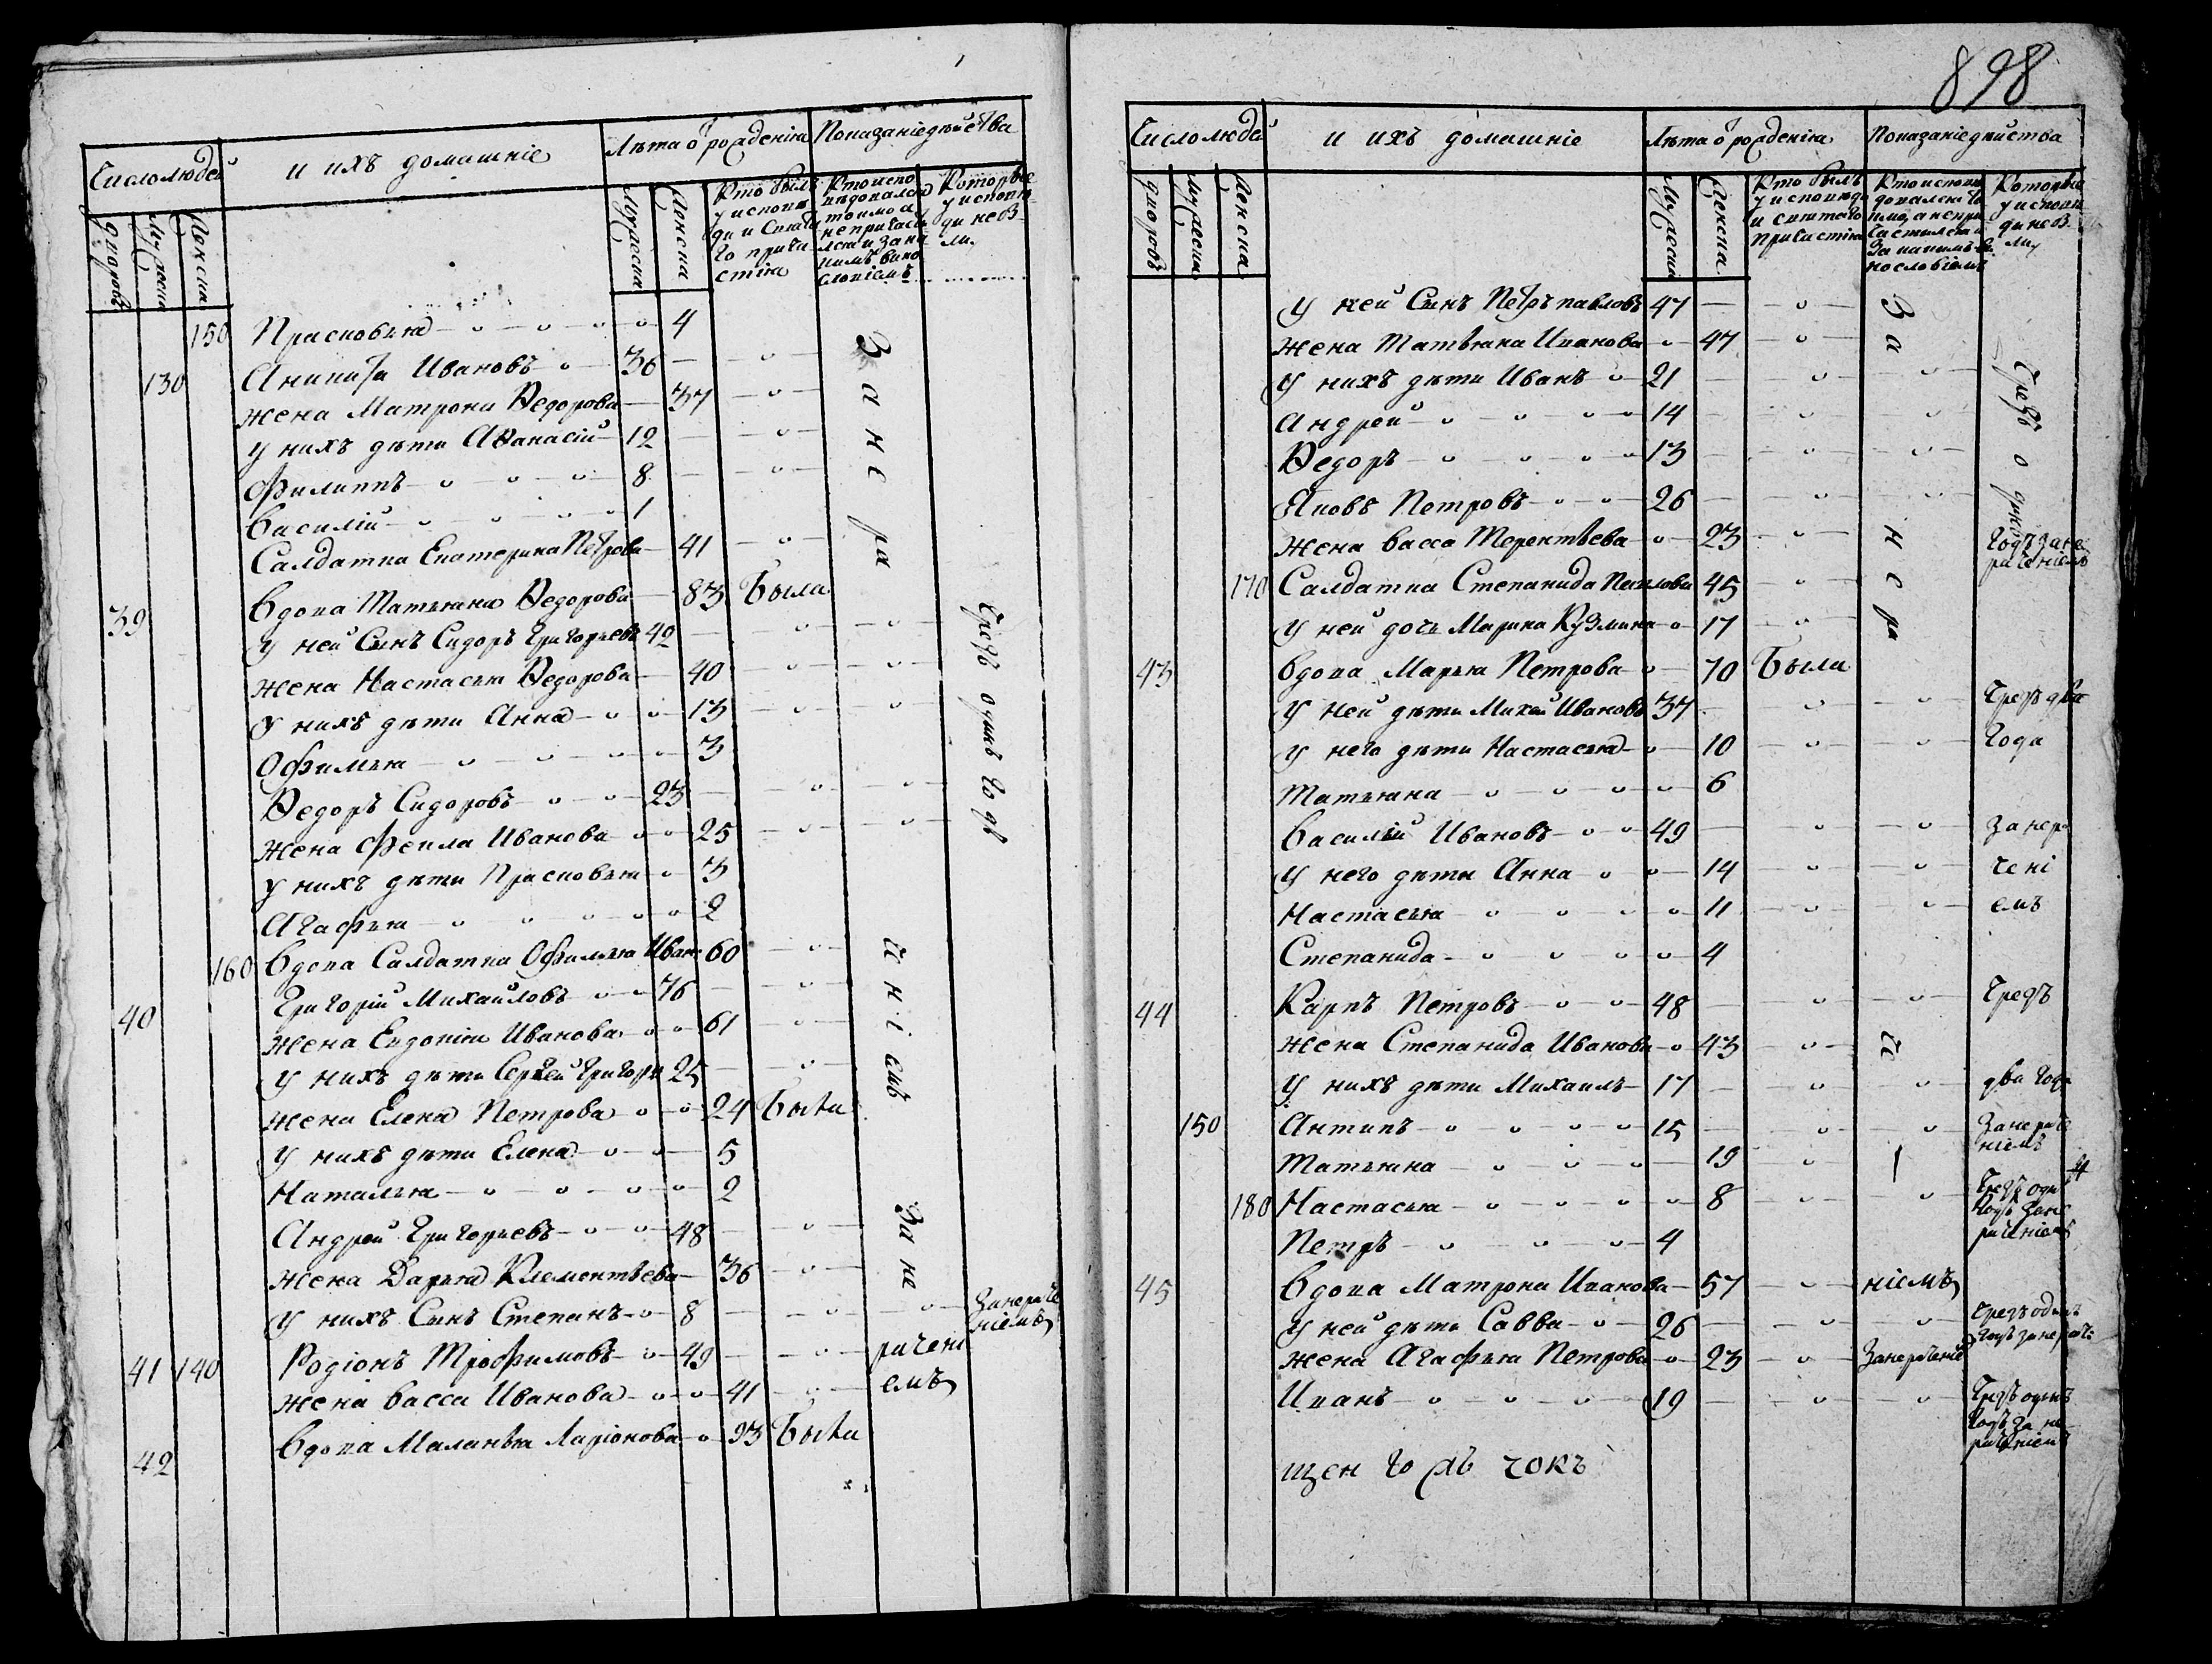 Число людей
и ихъ домашніе
Лѣта ѿ рожденія
Показаніе дѣйства
дворовъ
Мужеска
Женска
Мужеска
Женска
Кто былъ
у исповѣ
ди и Свята
го прича
стія
Кто испо
вѣдовался
токмо а
не причас
лся и за ка
кимъ вино
словіемъ
Которые
у исповѣ
ди не бы
ли
150 Прасковья 4
130 Аникита Ивановъ 36
жена Матрона Ѳедорова 37
у нихъ дѣти Аѳанасій 12
Филиппъ 8
Василій 1
Салдатка Екатерина Петрова 41
39 Вдова Татьяна Ѳедорова 83 Была
у ней Сынъ Сидоръ Григорьевъ 42
жена Настасья Ѳедорова 40
у нихъ дѣти Анна 13
Офимья 3
Ѳедоръ Сидоровъ 23
жена Фекла Иванова 25
у нихъ дѣти Прасковья 3
Агафья 2
160 Вдова Салдатка Офимья Иван 60
40 Григорій Михайловъ 76
жена Евдокія Иванова 61
у нихъ дѣти Сергей Григорь 25
жена Елена Петрова 24 Была
у нихъ дѣти Елена 5
Наталья 2
Андрей Григорьевъ 48
жена Дарья Клементьева 36
у нихъ Сынъ Степанъ 8 Занераче
ніемъ
41 140 Родіонъ Трофимовъ 49 рачені
жена Васса Иванова 41 емъ
42 Вдова Маланья Ларіонова 93 Была
За не ра
чніемъ
За не
Чрезъ одинъ годъ
898
Число людей
и ихъ домашніе
Лѣта ѿ рожденія
Показаніе дѣйства
дворовъ
Мужеска
Женска
Мужеска
Женска
Кто былъ
у исповѣди
и святаго
причастія
Кто исповѣ
довался то
кмо, а не при
частился и
за какимъ ви
нословіемъ
Которые
у исповѣ
ди не бы
ли
у ней Сынъ Петръ павловъ 47 За
жена Татьяна Иванова 47
у нихъ дѣти Иванъ 21
Андрей 14
Ѳедоръ 13
Яковъ Петровъ 26
Чрезъ одинъ
жена Васса Терентьева 23 не годъ зане
раченіемъ
170 Салдатка Степанида Павлова 45
у ней дочь Марина Кузмина 17 ра
43 Вдова Марья Петрова 70 Была
у ней дѣти Михей Ивановъ 37 Чрезъ два
у него дѣти Настасья 10 года
Татьяна 6
Василій Ивановъ 49 занера
у него дѣти Анна 14 чені
Настасья 11 емъ
Степанида 4
44 Карпъ Петровъ 48 Чрезъ
жена Степанида Иванова 43 че
у нихъ дѣти Михаилъ 17 два года
150 Антипъ 15 Занераче
ніемъ
Татьяна 19
180 Настасья 8 Чрезъ один
годъ зане
раченіемъ
Петръ 4
45 Вдова Матрона Иванова 57 ніемъ
у ней дѣти Савва 26 Чрезъ одинъ
годъ занерач:
жена Агафья Петрова 23 Занераченіе
Иванъ 19 Чрезъ одинъ
годъ за не
раченіемъ